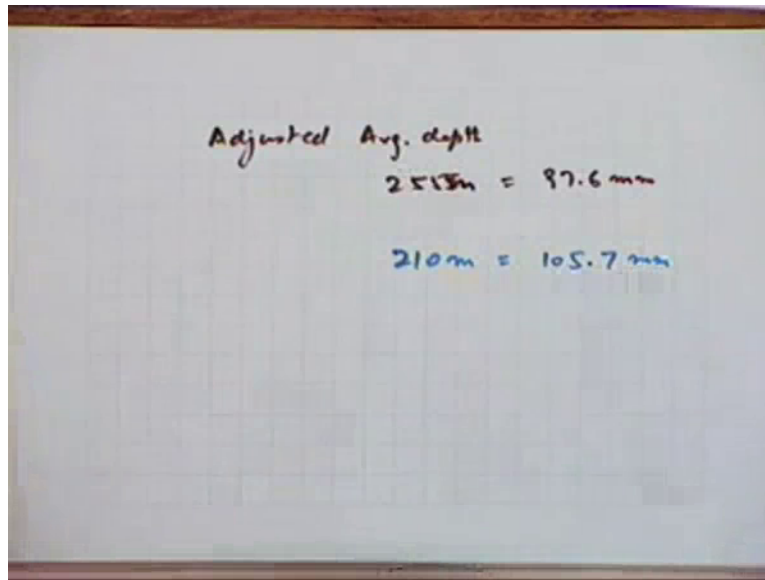 Adjusted Avg. depth
= 97.6 mm
210 m = 105.7 mm